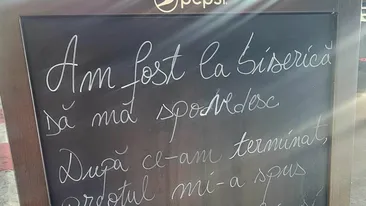 pepsi
Am fost la biserică
să mă spovedesc
După ce-am terminat,
preotul mi-a spus